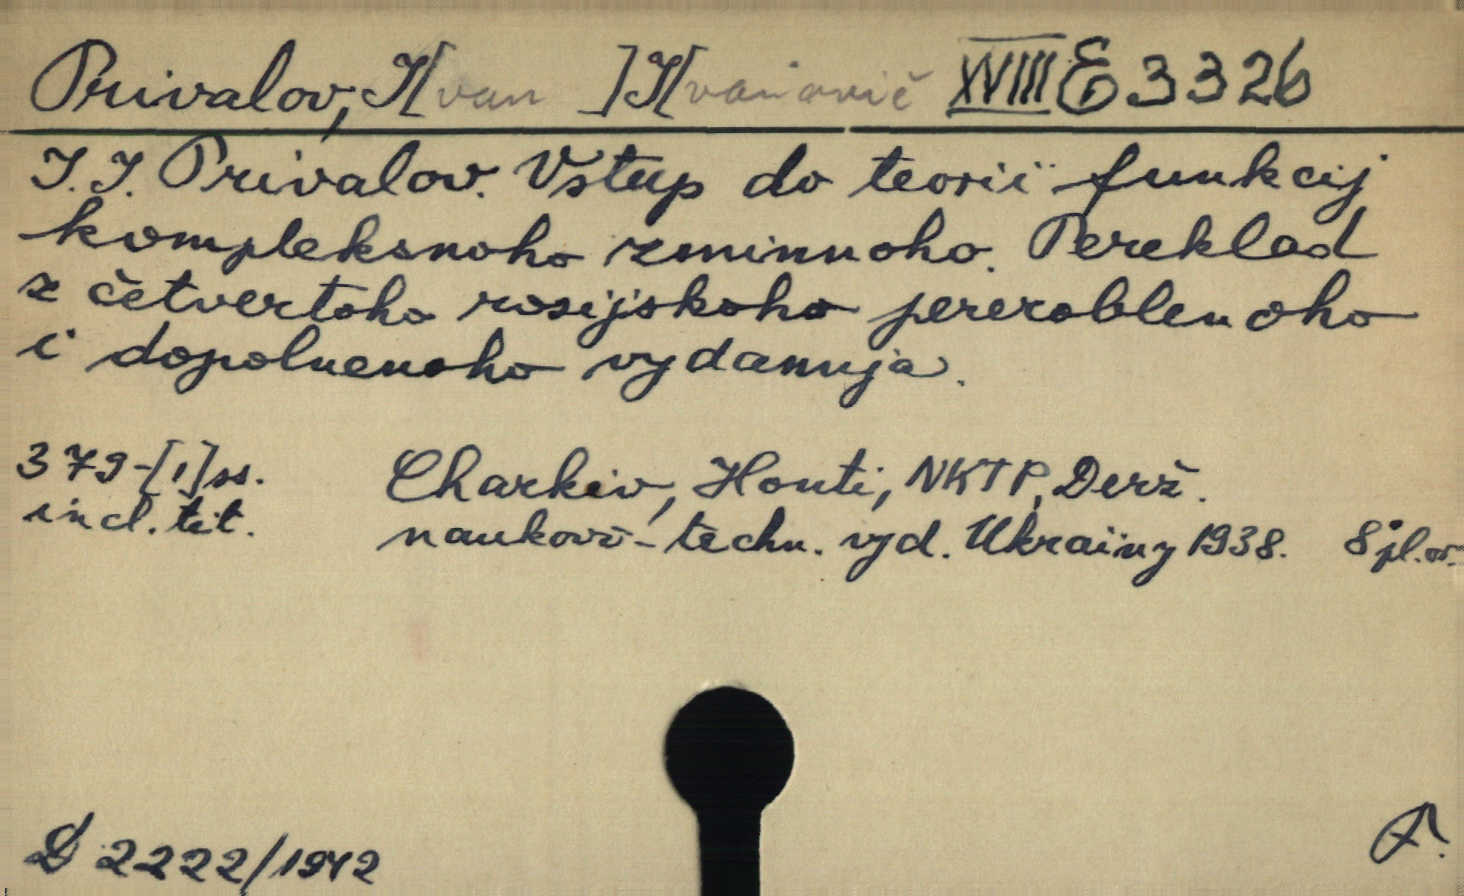 Privalov, I[van ] I[vanovič XVIII E 3326
I. I. Privalov. Vstup do teoriï funkcij
kompleksnoho zminnoho. Pereklad
z četvertoho rosijskoho pereroblenoho
i dopolnenoho vydannja.
379-[1] ss. Charkiv, Honti, NKTP, Derž.
incl. tit. naukovo-techn. vyd. Ukraïny 1938. 8° pl. or.
D 2222/1942